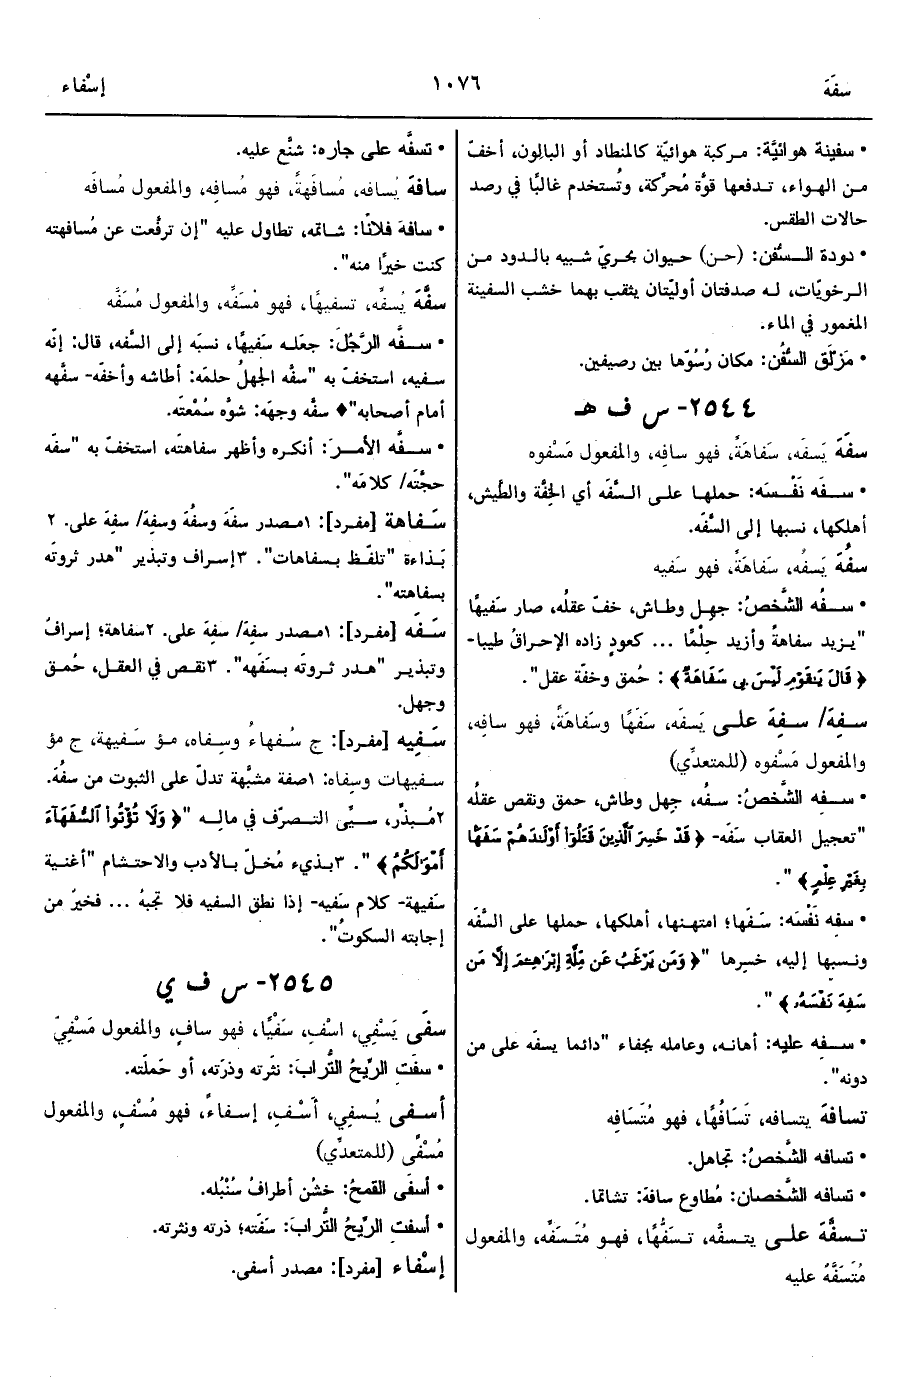 سفَهَ
١٠٧٦
إسْفاء
• سفينة هوائيَّة: مركبة هوائيّة كالمنطاد أو البالون، أخفّ
من الهواء، تدفعها قوَّة مُحرِّكة، وتُستخدم غالبًا في رصد
حالات الطقس.
• دودة السُّفن: (حن) حيوان بحريّ شبيه بالدود من
الرخويّات، له صدفتان أوليّتان يثقب بهما خشب السفينة
المغمور في الماء.
• مَزلَق السُّفُن: مكان رُسُوّها بين رصيفين.
٢٥٤٤- س ف هـ
سفَهَ يَسفَه، سَفاهَةً، فهو سافِه، والمفعول مَسْفوه
• سفَه نَفْسَه: حملها على السَّفَه أي الخِفَّة والطَّيش،
أهلكها، نسبها إلى السَّفَه.
سفُهَ يَسفُه، سَفاهَةً، فهو سَفيه
• سفُه الشَّخصُ: جهِل وطاش، خفّ عقلُه، صار سَفيهًا
"يزيد سفاهةً وأزيد حِلْمًا ... كعودٍ زاده الإحراقُ طيبا-
﴿قَالَ يَٰقَوْمِ لَيْسَ بِي سَفَاهَةٌ﴾: حُمق وخفّة عقل".
سفِهَ/ سفِهَ على يَسفَه، سَفَهًا وسَفاهَةً، فهو سافِه،
والمفعول مَسْفوه (للمتعدِّي)
• سفِه الشَّخصُ: سفُه، جهِل وطاش، حمق ونقص عقلُه
"تعجيل العقاب سَفَه- ﴿قَدْ خَسِرَ ٱلَّذِينَ قَتَلُوٓا۟ أَوْلَٰدَهُمْ سَفَهًۢا
بِغَيْرِ عِلْمٍ﴾".
• سفِه نَفْسَه: سَفَهها؛ امتهنها، أهلكها، حملها على السَّفَه
ونسبها إليه، خسِرها "﴿وَمَن يَرْغَبُ عَن مِّلَّةِ إِبْرَٰهِۦمَ إِلَّا مَن
سَفِهَ نَفْسَهُۥ﴾".
• سفِه عليه: أهانه، وعامله بجفاء "دائما يسفَه على من
دونه".
تسافهَ يتسافه، تَسَافُهًا، فهو مُتَسَافِه
• تسافه الشَّخصُ: تجاهل.
• تسافه الشَّخصان: مُطاوع سافهَ: تشاتما.
تسفَّهَ على يتسفَّه، تسَفُّهًا، فهو مُتَسفِّه، والمفعول
مُتَسَفَّهٌ عليه
• تسفَّه على جاره: شنَّع عليه.
سافهَ يُسافه، مُسافَهَةً، فهو مُسافِه، والمفعول مُسافَه
• سافهَ فلانًا: شاتمه، تطاول عليه "إن ترفَّعت عن مُسافهته
كنت خيرًا منه".
سفَّهَ يُسفِّه، تسفيهًا، فهو مُسَفِّه، والمفعول مُسَفَّه
• سفَّه الرَّجُلَ: جعَله سَفيهًا، نسبَه إلى السَّفه، قال: إنّه
سفيه، استخفّ به "سفَّه الجهلُ حلمَه: أطاشه وأخفّه- سفَّهه
أمام أصحابه"♦ سفَّه وجهَه: شوَّه سُمْعتَه.
• سفَّه الأمرَ: أنكره وأظهر سفاهتَه، استخفّ به "سفَّه
حجَّتَه/ كلامَه".
سَفاهة [مفرد]: ١مصدر سفَهَ وسفُهَ وسفِهَ/ سفِهَ على. ٢
بَذاءة "تلفّظ بسفاهات". ٣إسراف وتبذير "هدر ثروتَه
بسفاهته".
سَفَه [مفرد]: ١مصدر سفِهَ/ سفِهَ على. ٢سفاهة؛ إسرافٌ
وتبذير "هدر ثروتَه بسَفَهه". ٣نقص في العقل، حُمق
وجهل.
سَفِيه [مفرد]: ج سُفهاءُ وسِفاه، مؤ سَفيهة، ج مؤ
سفيهات وسِفاه: ١صفة مشبَّهة تدلّ على الثبوت من سفُهَ.
٢مُبذِّر، سيِّئ التصرّف في ماله "﴿وَلَا تُؤْتُوا۟ ٱلسُّفَهَآءَ
أَمْوَٰلَكُمُ﴾". ٣بذيء مُخلّ بالأدب والاحتشام "أغنية
سَفيهة- كلام سَفيه- إذا نطق السفيه فلا تجبهُ ... فخيرٌ من
إجابته السكوتُ".
٢٥٤٥- س ف ي
سفَى يَسْفِي، اسْفِ، سَفْيًا، فهو سافٍ، والمفعول مَسْفِيّ
• سفَتِ الرِّيحُ التُّرابَ: نثَرته وذرَته، أو حَملَته.
أسفى يُسفِي، أَسْفِ، إسفاءً، فهو مُسْفٍ، والمفعول
مُسْفًى (للمتعدِّي)
• أسفَى القمحُ: خشُن أطرافُ سُنْبُله.
• أسفتِ الرِّيحُ التُّرابَ: سَفَته؛ ذرته ونثرته.
إسْفاء [مفرد]: مصدر أسفى.